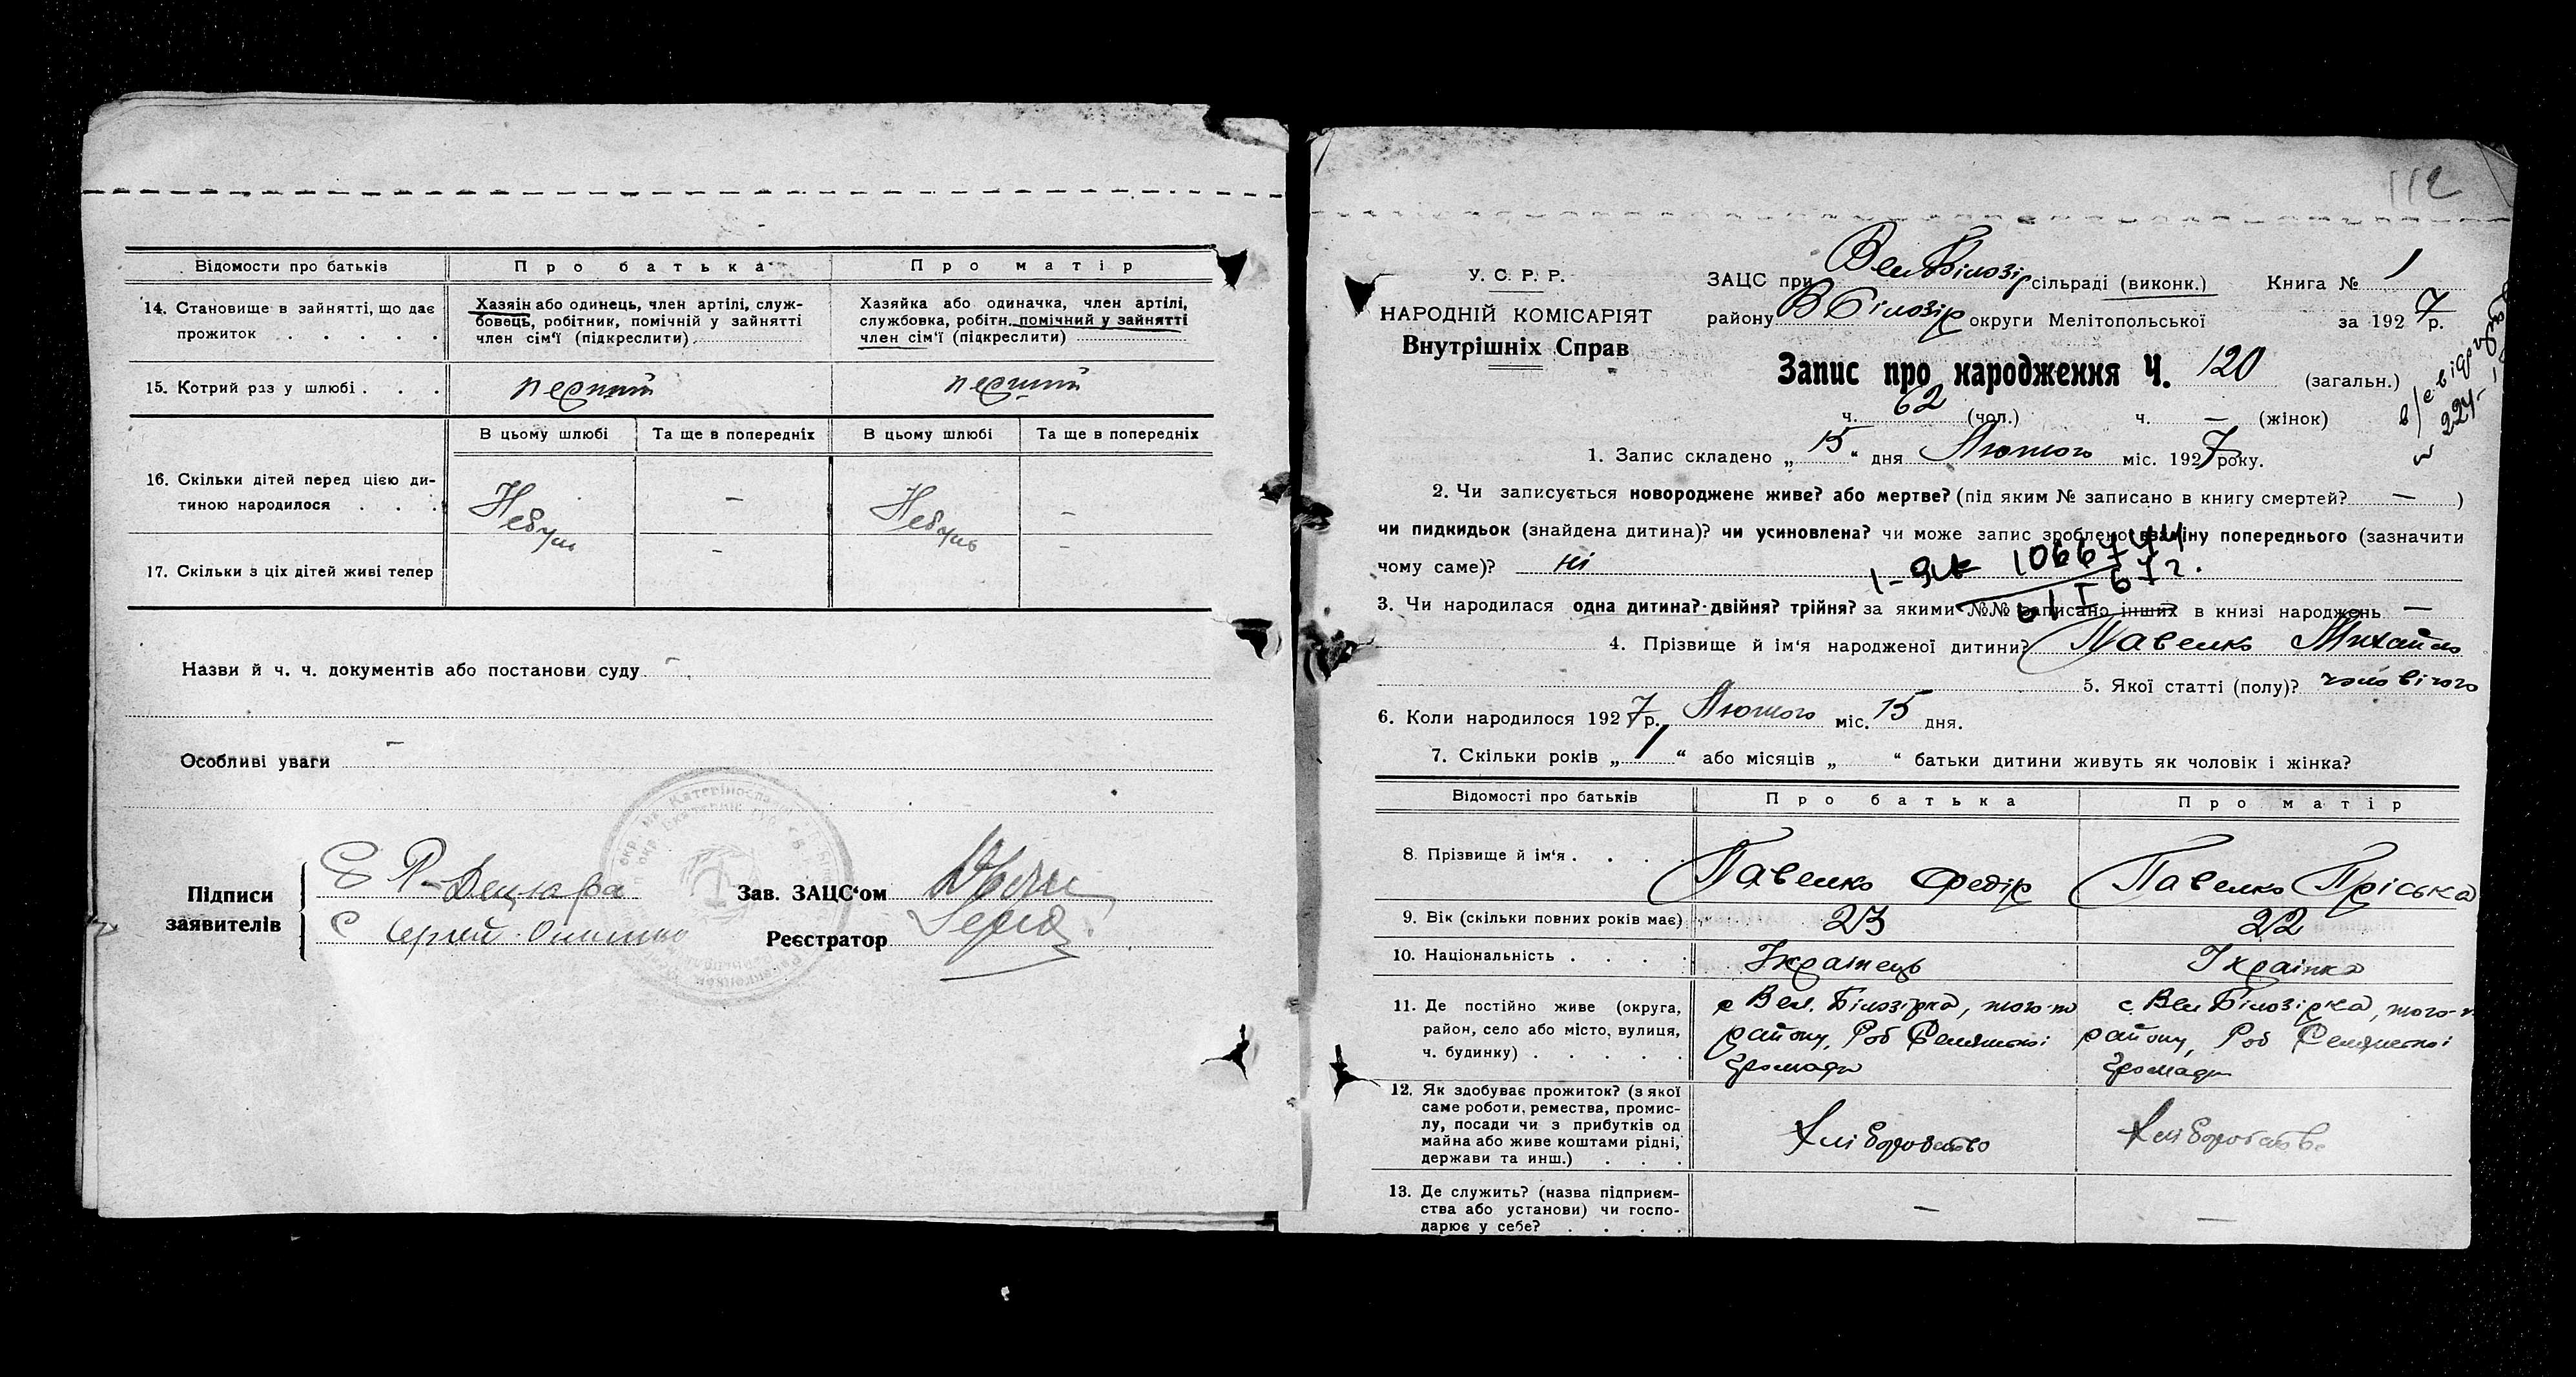 Відомости про батьків
Про батька
Про матір
14. Становище в зайнятті, що дає
прожиток . . . . .
Хазяін або одинець, член артілі, служ-
бовець, робітник, помічній у зайнятті
член сім'ї (підкреслити)
Хазяйка або одиначка, член артілі,
службовка, робітн. помічний у зайнятті
член сім'ї (підкреслити)
15. Котрий раз у шлюбі . . .
перший
перший
В цьому шлюбі
Та ще в попередніх
В цьому шлюбі
Та ще в попередніх
16. Скільки дітей перед цією ди-
тиною народилося . . .
Небуло
—
Небуло
—
17. Скільки з ціх дітей живі тепер
—
—
Назви й ч. ч. документів або постанови суду —
Особливі уваги —
Підписи
заявителів
Зав. ЗАЦС'ом
Реєстратор
112
У. С. Р. Р.
НАРОДНІЙ КОМІСАРІЯТ
Внутрішніх Справ
ЗАЦС при Вел Білозір сільраді (виконк.) Книга № 1
району В Білозір округи Мелітопольської за 1927 р.
Запис про народження Ч. 120 (загальн.)
ч. 62 (чол.) ч. — (жінок)
1. Запис складено „ 15 “ дня Лютого міс. 1927 року.
2. Чи записується новороджене живе? або мертве? (під яким № записано в книгу смертей? — )
чи пидкидьок (знайдена дитина)? чи усиновлена? чи може запис зроблено взаміну попереднього (зазначити
чому саме)? ні
3. Чи народилася одна дитина? двійня? трійня? за якими №№ записано інших в книзі народжень —
4. Прізвище й ім'я народженої дитини? Павенко Михайло
5. Якої статті (полу)? чоловічого
6. Коли народилося 1927 р. Лютого міс. 15 дня.
7. Скільки років „ 1 “ або місяців „ “ батьки дитини живуть як чоловік і жінка?
Відомості про батьків
Про батька
Про матір
8. Прізвище й ім'я . . . .
Павенко Федір
Павенко Пріська
9. Вік (скільки повних років має)
23
22
10. Національність . . . .
Українець
Українка
11. Де постійно живе (округа,
район, село або місто, вулиця,
ч. будинку) . . . . .
с Вел. Білозірка, того-ж
району, Роб Селянської
Громади
с. Вел Білозірка, того-ж
району, Роб Селянської
Громади
12. Як здобуває прожиток? (з якої
саме роботи, ремества, промис-
лу, посади чи з прибутків од
майна або живе коштами рідні,
держави та инш.) . . .
Хліборобство
Хліборобство
13. Де служить? (назва підприєм-
ства або установи) чи госпо-
дарює у себе? . . . .
—
—